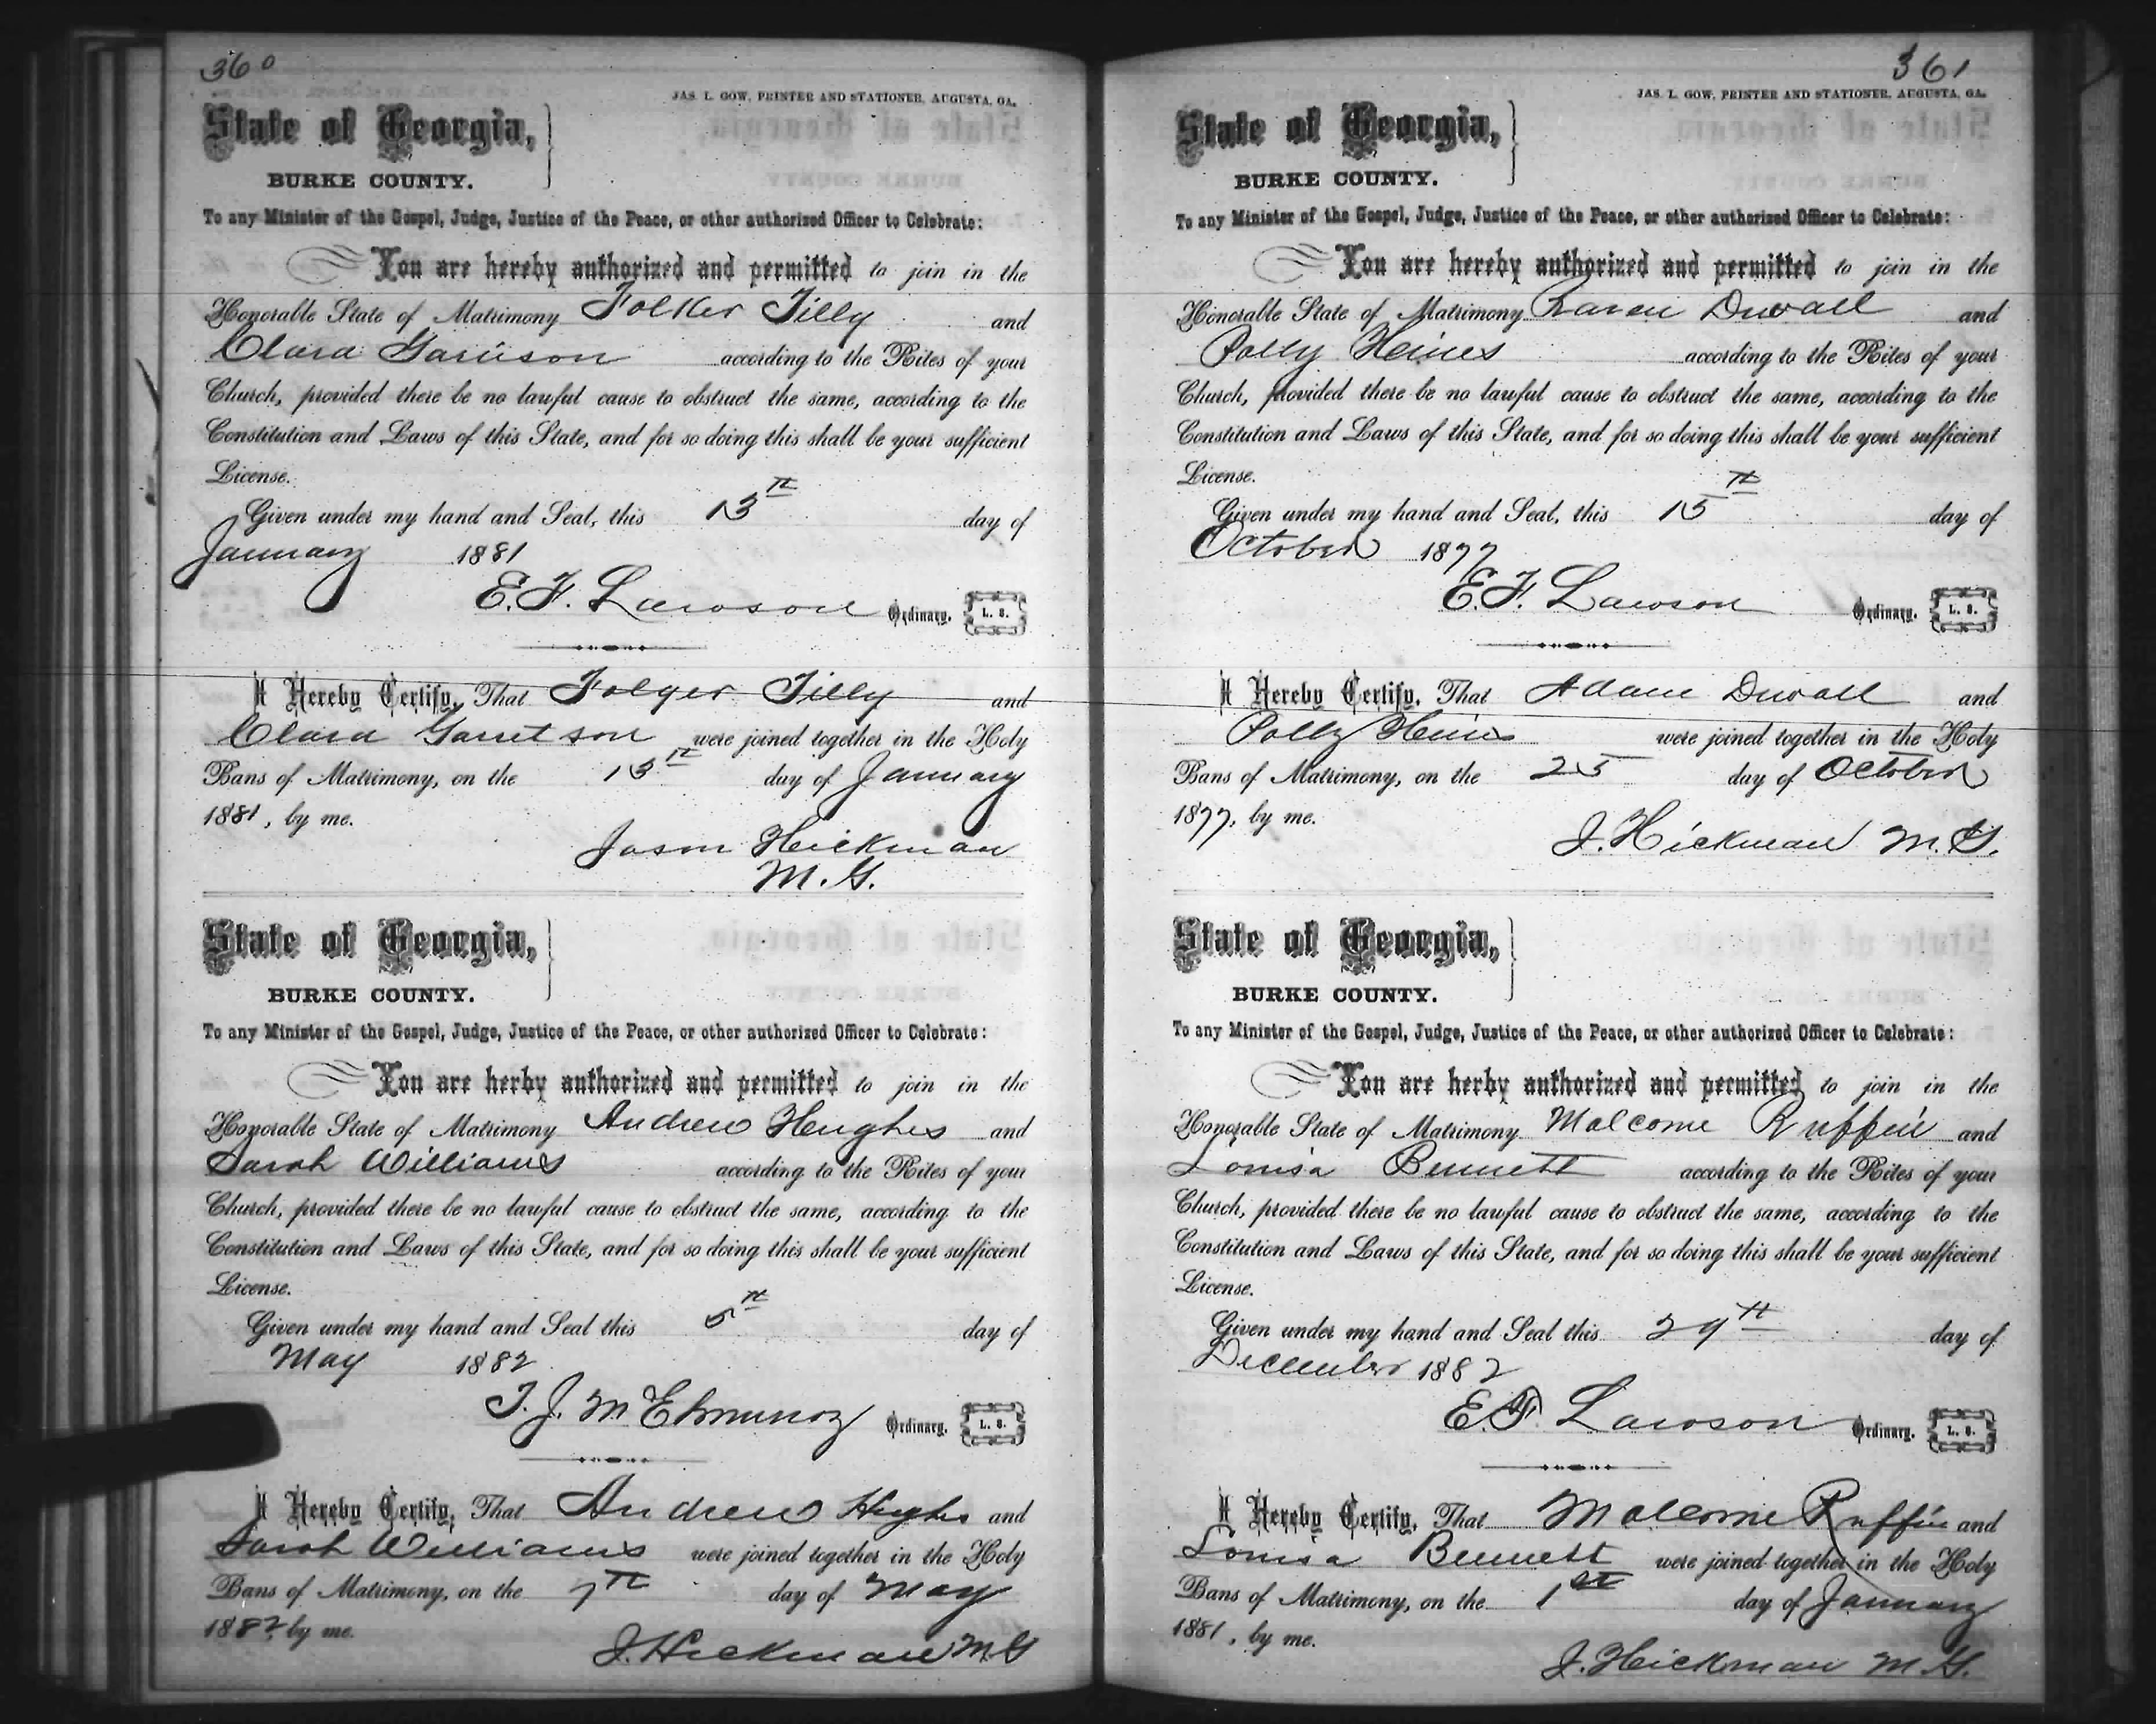 360
JAS. L. GOW, PRINTER AND STATIONER, AUGUSTA, GA.
State of Georgia,
BURKE COUNTY.
To any Minister of the Gospel, Judge, Justice of the Peace, or other authorized Officer to Celebrate:
You are hereby authorized and permitted to join in the
Honorable State of Matrimony Folker Tilly and
Clara Garrison according to the Rites of your
Church, provided there be no lawful cause to obstruct the same, according to the
Constitution and Laws of this State, and for so doing this shall be your sufficient
License.
Given under my hand and Seal, this 13th day of
January 1881
E. F. Lawson Ordinary. L. S.
I Hereby Certify, That Folger Tilly and
Clara Garretson were joined together in the Holy
Bans of Matrimony, on the 13th day of January
1881, by me.
Jason Hickman
M. G.
State of Georgia,
BURKE COUNTY.
To any Minister of the Gospel, Judge, Justice of the Peace, or other authorized Officer to Celebrate:
You are herby authorized and permitted to join in the
Honorable State of Matrimony Andrew Hughes and
Sarah Williams according to the Rites of your
Church, provided there be no lawful cause to obstruct the same, according to the
Constitution and Laws of this State, and for so doing this shall be your sufficient
License.
Given under my hand and Seal this 5th day of
May 1882
Ordinary. L. S.
I Hereby Certify, That Andrew Hughs and
Sarah Williams were joined together in the Holy
Bans of Matrimony, on the 7th day of May
1882, by me.
J. Hickman M. G
361
JAS. L. GOW, PRINTER AND STATIONER, AUGUSTA, GA.
State of Georgia,
BURKE COUNTY.
To any Minister of the Gospel, Judge, Justice of the Peace, or other authorized Officer to Celebrate:
You are hereby authorized and permitted to join in the
Honorable State of Matrimony Duvall and
Polly Heines according to the Rites of your
Church, provided there be no lawful cause to obstruct the same, according to the
Constitution and Laws of this State, and for so doing this shall be your sufficient
License.
Given under my hand and Seal, this 15th day of
October 1877
E. F. Lawson Ordinary. L. S.
I Hereby Certify, That Adam Duvall and
Polly Heines were joined together in the Holy
Bans of Matrimony, on the 25 day of October
1877, by me.
J. Hickman M. G.
State of Georgia,
BURKE COUNTY.
To any Minister of the Gospel, Judge, Justice of the Peace, or other authorized Officer to Celebrate:
You are herby authorized and permitted to join in the
Honorable State of Matrimony Malcome Ruffin and
Louisa Bennett according to the Rites of your
Church, provided there be no lawful cause to obstruct the same, according to the
Constitution and Laws of this State, and for so doing this shall be your sufficient
License.
Given under my hand and Seal this 29th day of
December 1882
E. F. Lawson Ordinary. L. S.
I Hereby Certify, That Malcome Ruffin and
Louisa Bennett were joined together in the Holy
Bans of Matrimony, on the 1st day of January
1881, by me.
J. Hickman M. G.